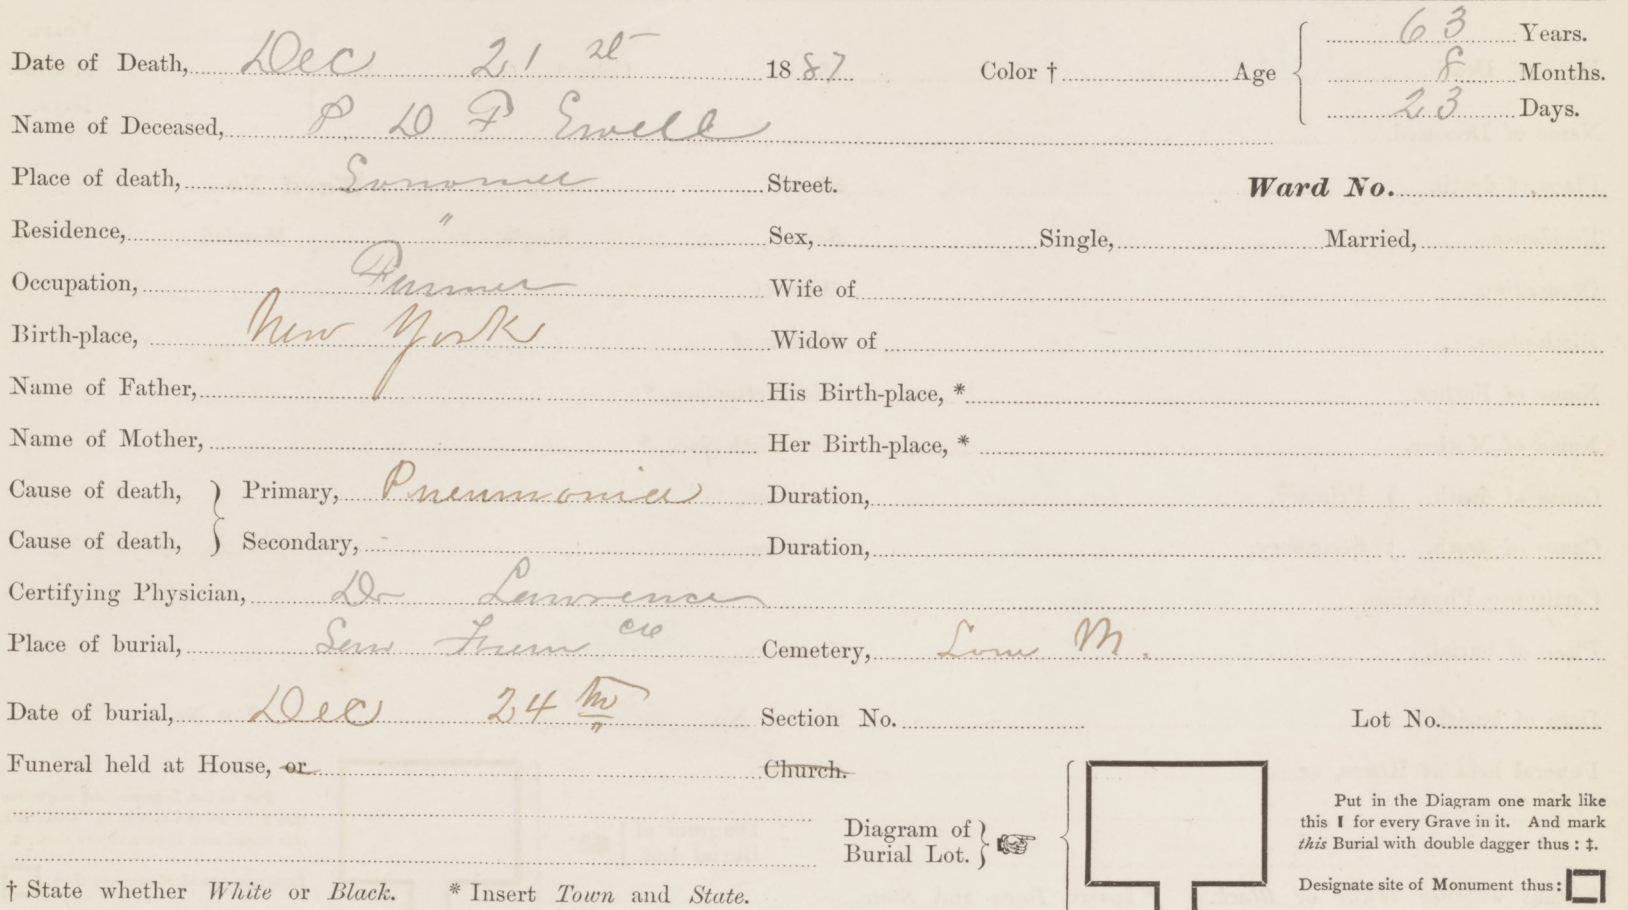 Date of Death, Dec 21 st 1887 Color † Age 63 Years.
8 Months.
23 Days.
Name of Deceased, P. D F Ewell
Place of death, Sonoma Street. Ward No.
Residence, " Sex, Single, Married,
Occupation, Farmer Wife of
Birth-place, New York Widow of
Name of Father, His Birth-place, *
Name of Mother, Her Birth-place, *
Cause of death, } Primary, Pneumonia Duration,
Cause of death, } Secondary, - Duration,
Certifying Physician, Dr Lawrence
Place of burial, San Fran co Cemetery, Lone M.
Date of burial, Dec 24 th Section No. Lot No.
Funeral held at House, or Church.
Diagram of
Burial Lot.
Put in the Diagram one mark like
this I for every Grave in it. And mark
this Burial with double dagger thus : ‡.
Designate site of Monument thus:
† State whether White or Black. * Insert Town and State.